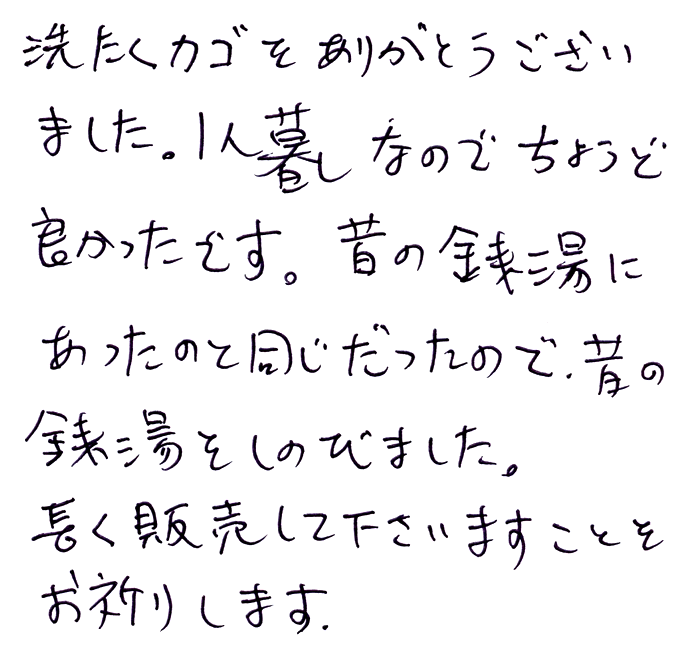 洗たくカゴをありがとうござい
ました。1人暮しなのでちょうど
良かったです。昔の銭湯に
あったのと同じだったので.昔の
銭湯をしのびました。
長く販売して下さいますことを
お祈りします.